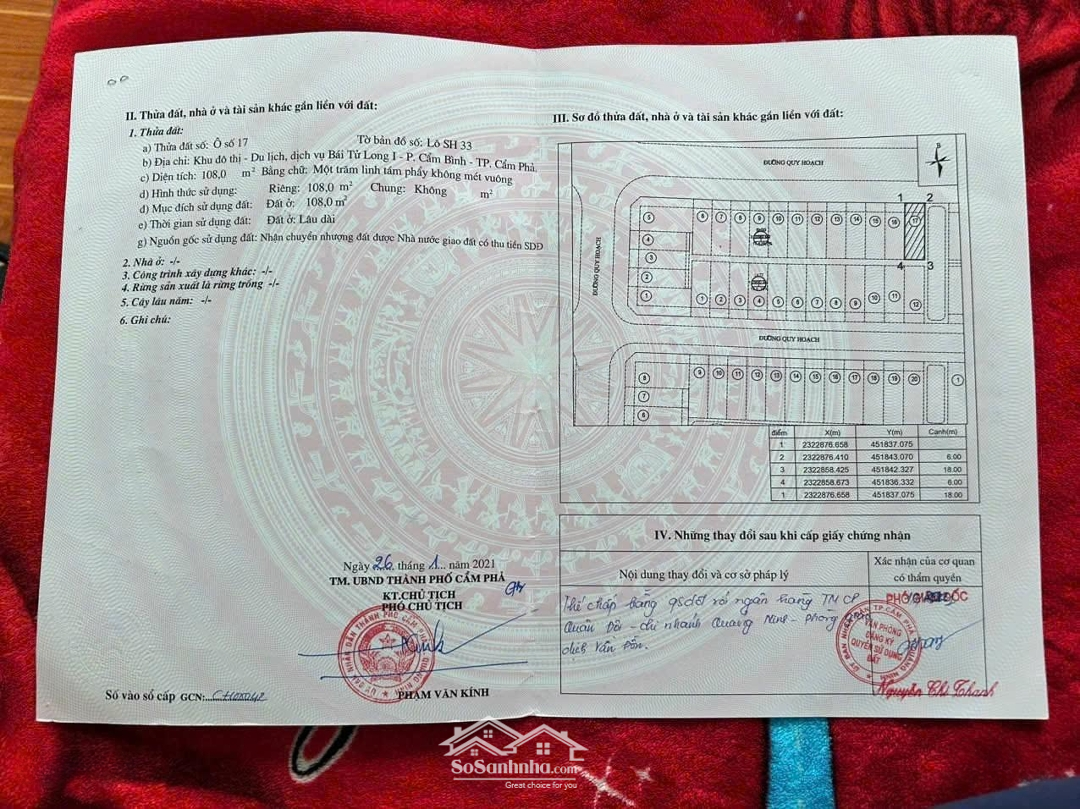 II. Thửa đất, nhà ở và tài sản khác gắn liền với đất:
1. Thửa đất:
a) Thửa đất số: Ô số 17 Tờ bản đồ số: Lô SH 33
b) Địa chỉ: Khu đô thị - Du lịch, dịch vụ Bái Tử Long I - P. Cẩm Bình - TP. Cẩm Phả.
c) Diện tích: 108,0 m² Bằng chữ: Một trăm linh tám phẩy không mét vuông
d) Hình thức sử dụng: Riêng: 108.0 m² Chung: Không m²
đ) Mục đích sử dụng đất: Đất ở: 108,0 m²
e) Thời gian sử dụng đất: Đất ở: Lâu dài
g) Nguồn gốc sử dụng đất: Nhận chuyển nhượng đất được Nhà nước giao đất có thu tiền SDĐ
2. Nhà ở: -/-
3. Công trình xây dựng khác: -/-
4. Rừng sản xuất là rừng trồng -/-
5. Cây lâu năm: -/-
6. Ghi chú:
Ngày 26 tháng 1 năm 2021
TM. UBND THÀNH PHỐ CẨM PHẢ
KT.CHỦ TỊCH
PHÓ CHỦ TỊCH
PHẠM VĂN KÍNH
Số vào sổ cấp GCN:
III. Sơ đồ thửa đất, nhà ở và tài sản khác gắn liền với đất:
ĐƯỜNG QUY HOẠCH
1 2
5 6 7 8 9 10 11 12 13 14 15 16 17
4
3
4 3
2
1 1 2 3 4 5 6 7 8 9 10 11 12
ĐƯỜNG QUY HOẠCH
ĐƯỜNG QUY HOẠCH
8 9 10 11 12 13 14 15 16 17 18 19 20 1
7
6
điểm X(m) Y(m) Cạnh(m)
1 2322876.658 451837.075
2 2322876.410 451843.070 6.00
3 2322858.425 451842.327 18.00
4 2322858.673 451836.332 6.00
1 2322876.658 451837.075 18.00
IV. Những thay đổi sau khi cấp giấy chứng nhận
Nội dung thay đổi và cơ sở pháp lý
Xác nhận của cơ quan
có thẩm quyền
Thế chấp bằng qsdđ với ngân hàng TMCP
Quân Đội - chi nhánh Quảng Ninh - Phòng giao
dịch Vân Đồn.
PHÓ GIÁM ĐỐC
VĂN PHÒNG
ĐĂNG KÝ
QUYỀN SỬ DỤNG
ĐẤT
Nguyễn Chí Thanh
SoSanhnha.com
Great choice for you